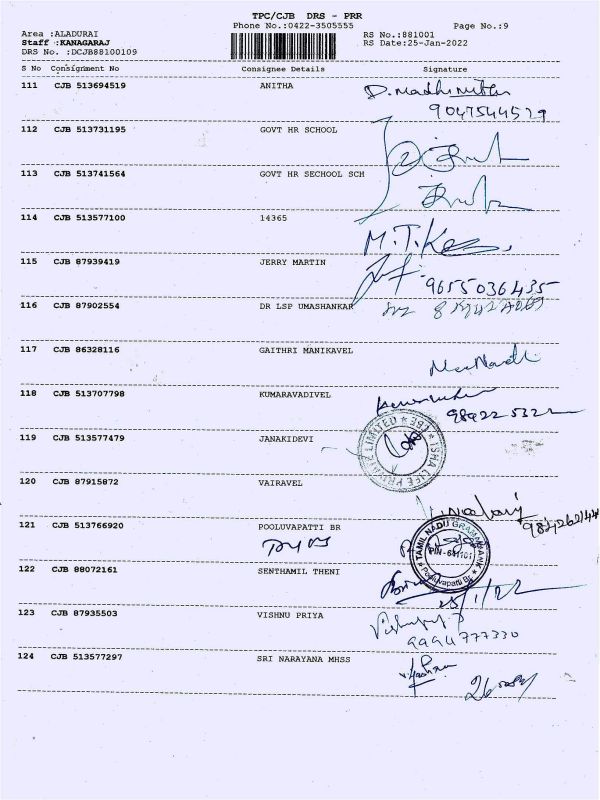 TPC/CJB DRS - PRR
Phone No.:0422-3505555 Page No.:9
Area :ALADURAI RS No.:881001
Staff :KANAGARAJ RS Date:25-Jan-2022
DRS No. :DCJB88100109
S No Consignment No Consignee Details Signature
111 CJB 513694519 ANITHA
9047544529
112 CJB 513731195 GOVT HR SCHOOL
113 CJB 513741564 GOVT HR SECHOOL SCH
114 CJB 513577100 14365
M.T.
115 CJB 87939419 JERRY MARTIN
9655036435
116 CJB 87902554 DR LSP UMASHANKAR
117 CJB 86328116 GAITHRI MANIKAVEL
118 CJB 513707798 KUMARAVADIVEL
119 CJB 513577479 JANAKIDEVI
ISHA LIFE PRIVATE LIMITED
120 CJB 87915872 VAIRAVEL
121 CJB 513766920 POOLUVAPATTI BR
TAMIL NADU GRAMA BANK
PIN-641101
Pooluvapatti Br.
122 CJB 88072161 SENTHAMIL THENI
25/1/22
123 CJB 87935503 VISHNU PRIYA
9994777330
124 CJB 513577297 SRI NARAYANA MHSS